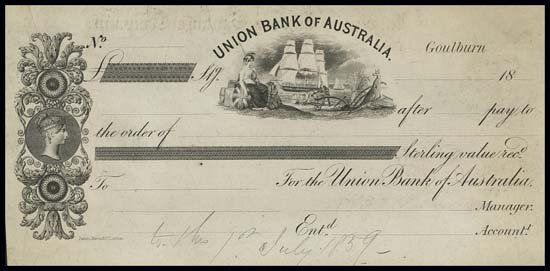 UNION BANK OF AUSTRALIA.
Goulburn
18
£ Stg.
after pay to
the order of
Sterling value rec.d
To For the Union Bank of Australia,
Manager.
Ent.d Account.t
July 1859